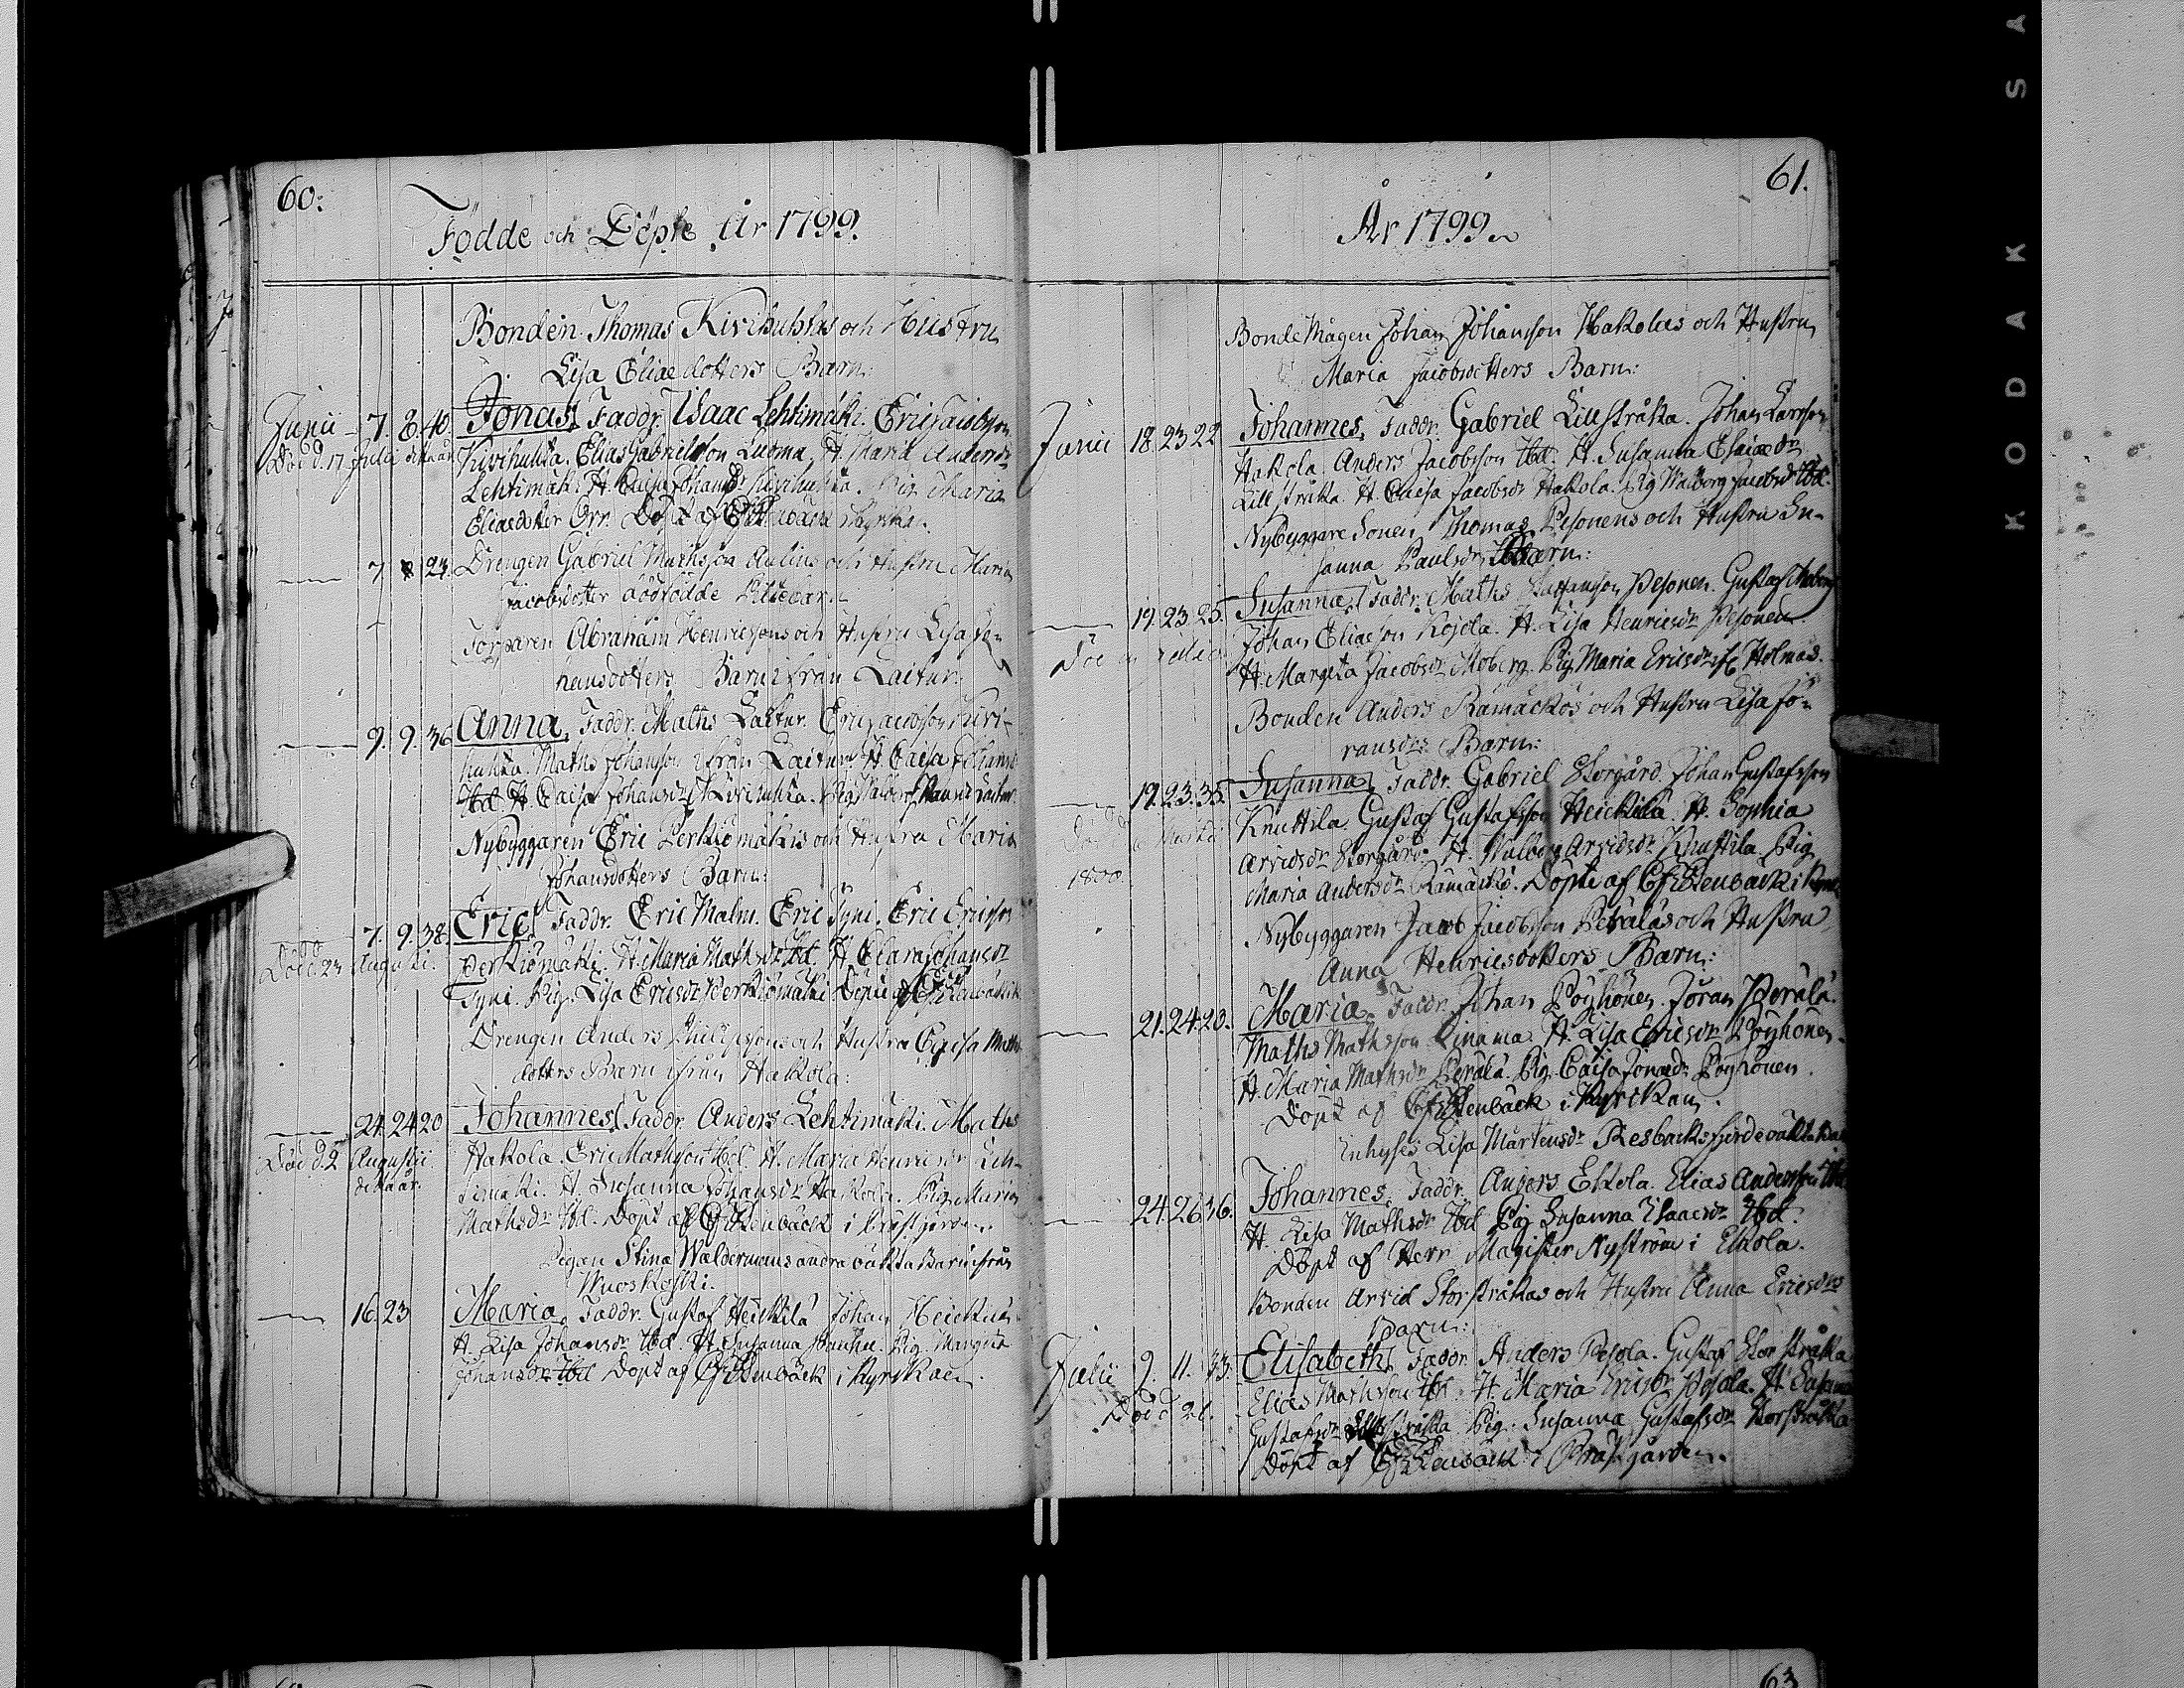 60:
Födde och Döpte År 1799.
Bonden Thomas Kivihuhtas och Hustru
Lisa Eliaedotters Barn:
Junii 7. 8. 40. Jonas, Faddr. Isaac Lehtimäki. Eric Jacobsson
Död d. 17 Julii
Kivihuhta. Elias Gabrielsson Luoma. H. Maria Andersdr
Lehtimäki. H. Caisa Johansdr Kivihuhta. Pig. Maria
Eliasdotter Orr. Döpt af CfEkenbäck i Kyrkan.
7 8 23. Drengen Gabriel Mathsson Aulins och Hustru Maria
Jacobsdotter dödfödde Piltebarn
Torparen Abraham Henricssons och Hustru Lisa Jo-
hansdotters Barn ifrån Laitur
9. 9. 36 Anna, Faddr. Maths Laitur. Eric Jacobsson Kivi-
huhta. Maths Johansson ifrån Laitur. H. Caisa Johansdr
Ibd. H. Caisa Johansdr Kivihuhta. Pig. Walborg
Nybyggaren Eric Perkiömäkis och Hustru Maria
Johansdotters Barn:
7. 9. 38 Eric, Faddr. Eric Malm. Eric Syni. Eric Ericsson
Död d. 23 Augusti.
Perkiömäki. H. Maria Mathsdr Ibd. H. Clara Johansdr
Syni. Pig. Lisa Ericsdr Perkiömäki Döpt af CfEkenbäck
Drengen Anders Philipssons och Hustru Caisa Maths
dotters Barn ifrån Hakola:
24. 24 20 Johannes, Faddr. Anders Lehtimäki. Maths
Död d. 2 Augustii
Hakola. Eric Mathsson Ibd. H. Maria Henricsdr Leh-
timäki. H. Susanna Johansdr Hakola. Pig. Maria
Mathsdr Ibd. Döpt af CfEkenbäck i Prästgården.
Pigan Stina Waldermans andra oäkta Barn ifrån
Muoskoski.
16. 23 Maria, Faddr. Gustaf Heickilä Johan Heickilä
H. Lisa Johansdr Ibd. H. Susanna Pig. Margeta
Johansdr Ibd Döpt af CfEkenbäck i Kyrkan.
61.
År 1799
Bonde Mågen Johan Johansson Hakolas och Hustru
Maria Jacobsdotters Barn:
Junii 18. 23 22 Johannes, Faddr. Gabriel Lillstråka. Johan Larsson
Hakola. Anders Jacobsson Ibd. H. Susanna Esaiædr
Lillstråka. H. Caisa Jacobsdr Hakola. Pig Walborg Jacobsdr Ibd.
Nybyggare Sonen Thomas Pesonens och Hustru Su-
sanna Paulsdrs Barn:
19. 23 25. Susanna, Faddr. Maths Staffansson Pesonen. Gustaf Moberg
Johan Eliaeson Kojola. H. Lisa Henricsdr Pesonen
H. Margeta Jacobsdr Moberg. Pig. Maria Ericsdr Holmas.
Bonden Anders Rämäckös och Hustru Lisa Jö-
ransdrs Barn:
19. 23. 35. Susanna, Faddr. Gabriel Storgård. Johan Gustafsson
Knuttila. Gustaf Gustafsson Heickilä. H. Sophia
Arvidsdr Storgård. H. Walborg Arvidsdr Knuttila. Pig.
1800
Maria Andersdr Rämäckö. Döpte af CfEkenbäck i Kyrk
Nybyggaren Jacob Jacobsson Peräläs och Hustru
Anna Henricsdotters Barn:
21. 24. 20. Maria. Faddr. Johan Pöyhönen. Jöran Perälä.
Maths Mathsson Linama. H. Lisa Ericsdr Pöyhönen.
H. Maria Mathsdr Perälä. Pig. Caisa Jonædr Pöyhönen.
Döpt af CfEkenbäck i Kyrckan
Inhyses Lisa Mårtensdr Resbacks fjerde oäkta Barn
24. 26 36. Johannes, Faddr. Anders Eskola. Elias Andersson Ibd
H. Lisa Mathsdr Ibd Pig Susanna Isaacsdr Ibd.
Döpt af Herr Magister Nyström i Eskola.
Bonden Arvid Storstråkas och Hustru Anna Ericsdrs
Barn:
Julii 9. 11. 33. Elisabeth, Faddr. Anders Pesola. Gustaf Storstråka
Död 21.
Elias Mathsson Ibd. H. Maria Ericsdr Pesola. H. Susanna
Gustafsdr Pig. Susanna Gustafsdr Storstråka
Döpt af CfEkenbäck i Prästgården.
63
KODAK SA